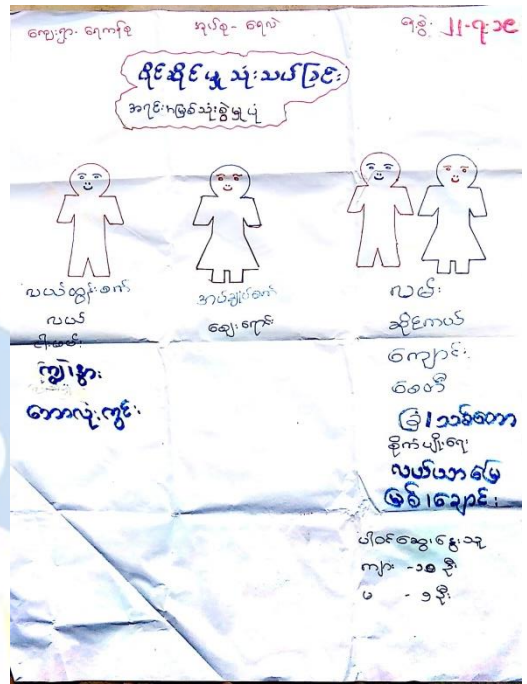 ကျေးရွာ- ရေကန်စု အုပ်စု- ရေလဲ ရက်စွဲ- ၂၂-၇-၁၉
ပိုင်ဆိုင်မှု သုံးသပ်ခြင်း
အရင်းအမြစ်သုံးစွဲမှုပုံ
လယ်ထွန်စက်
လယ်
ကျွဲ၊ နွား
ဘောလုံးကွင်း
အပ်ချုပ်စက်
ဈေးရောင်း
လမ်း
ဆိုင်ကယ်
ကျောင်း
စေတီ
ခြံ၊ သစ်တော
စိုက်ပျိုးရေး
လယ်ယာမြေ
မြစ်၊ ချောင်း
ပါဝင်ဆွေးနွေးသူ
ကျား -၁၈ ဦး
မ - ၁ ဦး